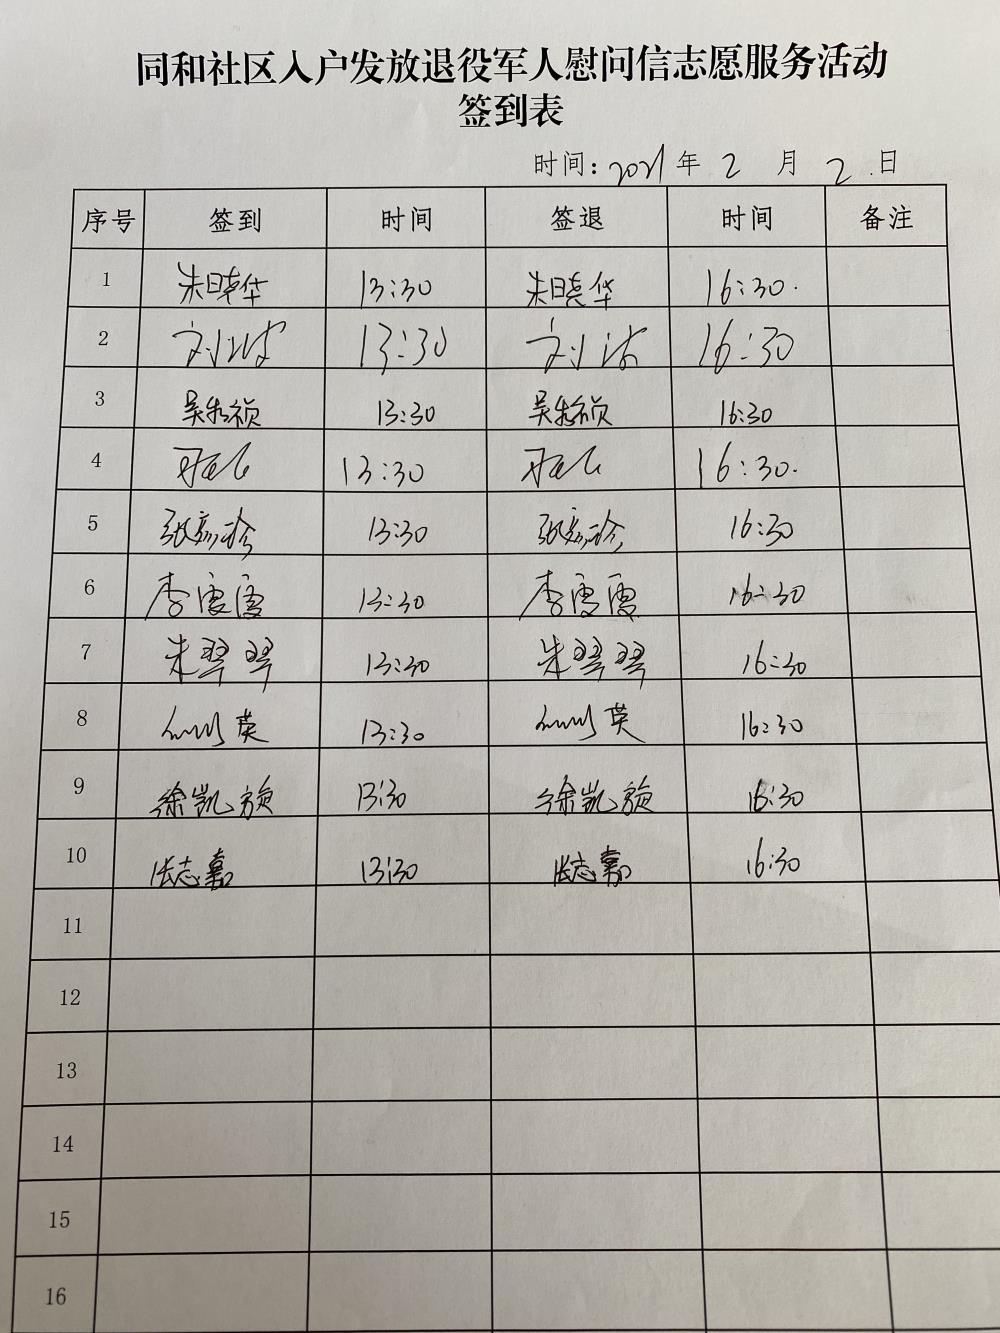 同和社区入户发放退役军人慰问信志愿服务活动
签到表
时间：2021年2月2日
序号 签到 时间 签退 时间 备注
1 朱晓华 13:30 朱晓华 16:30.
2 刘波 13:30 刘波 16:30
3 吴 祯 13:30 吴 祯 16:30
4 13:30 16:30.
5 张 珍 13:30 张 珍 16:30
6 李霞霞 13:30 李霞霞 16:30
7 朱翠翠 13:30 朱翠翠 16:30
8 英 13:30 英 16:30
9 徐凯旋 13:30 徐凯旋 16:30
10 张志嘉 13:30 张志嘉 16:30
11
12
13
14
15
16